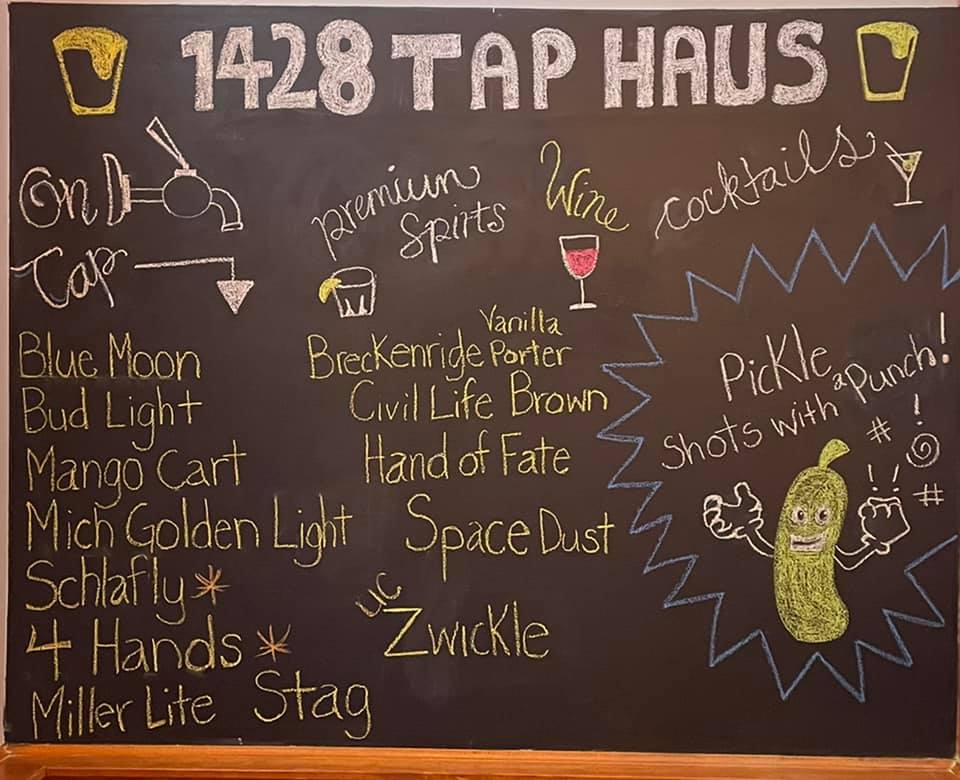 1428 TAP HAUS
On
Tap
premium
Spirts
Wine
cocktails
Blue Moon
Bud Light
Mango Cart
Mich Golden Light
Schlafly*
4 Hands *
Miller Lite
Stag
Vanilla
Breckenridge Porter
Civil Life Brown
Hand of Fate
Space Dust
UC
Zwickle
Pickle
Shots with a Punch!
# !
#